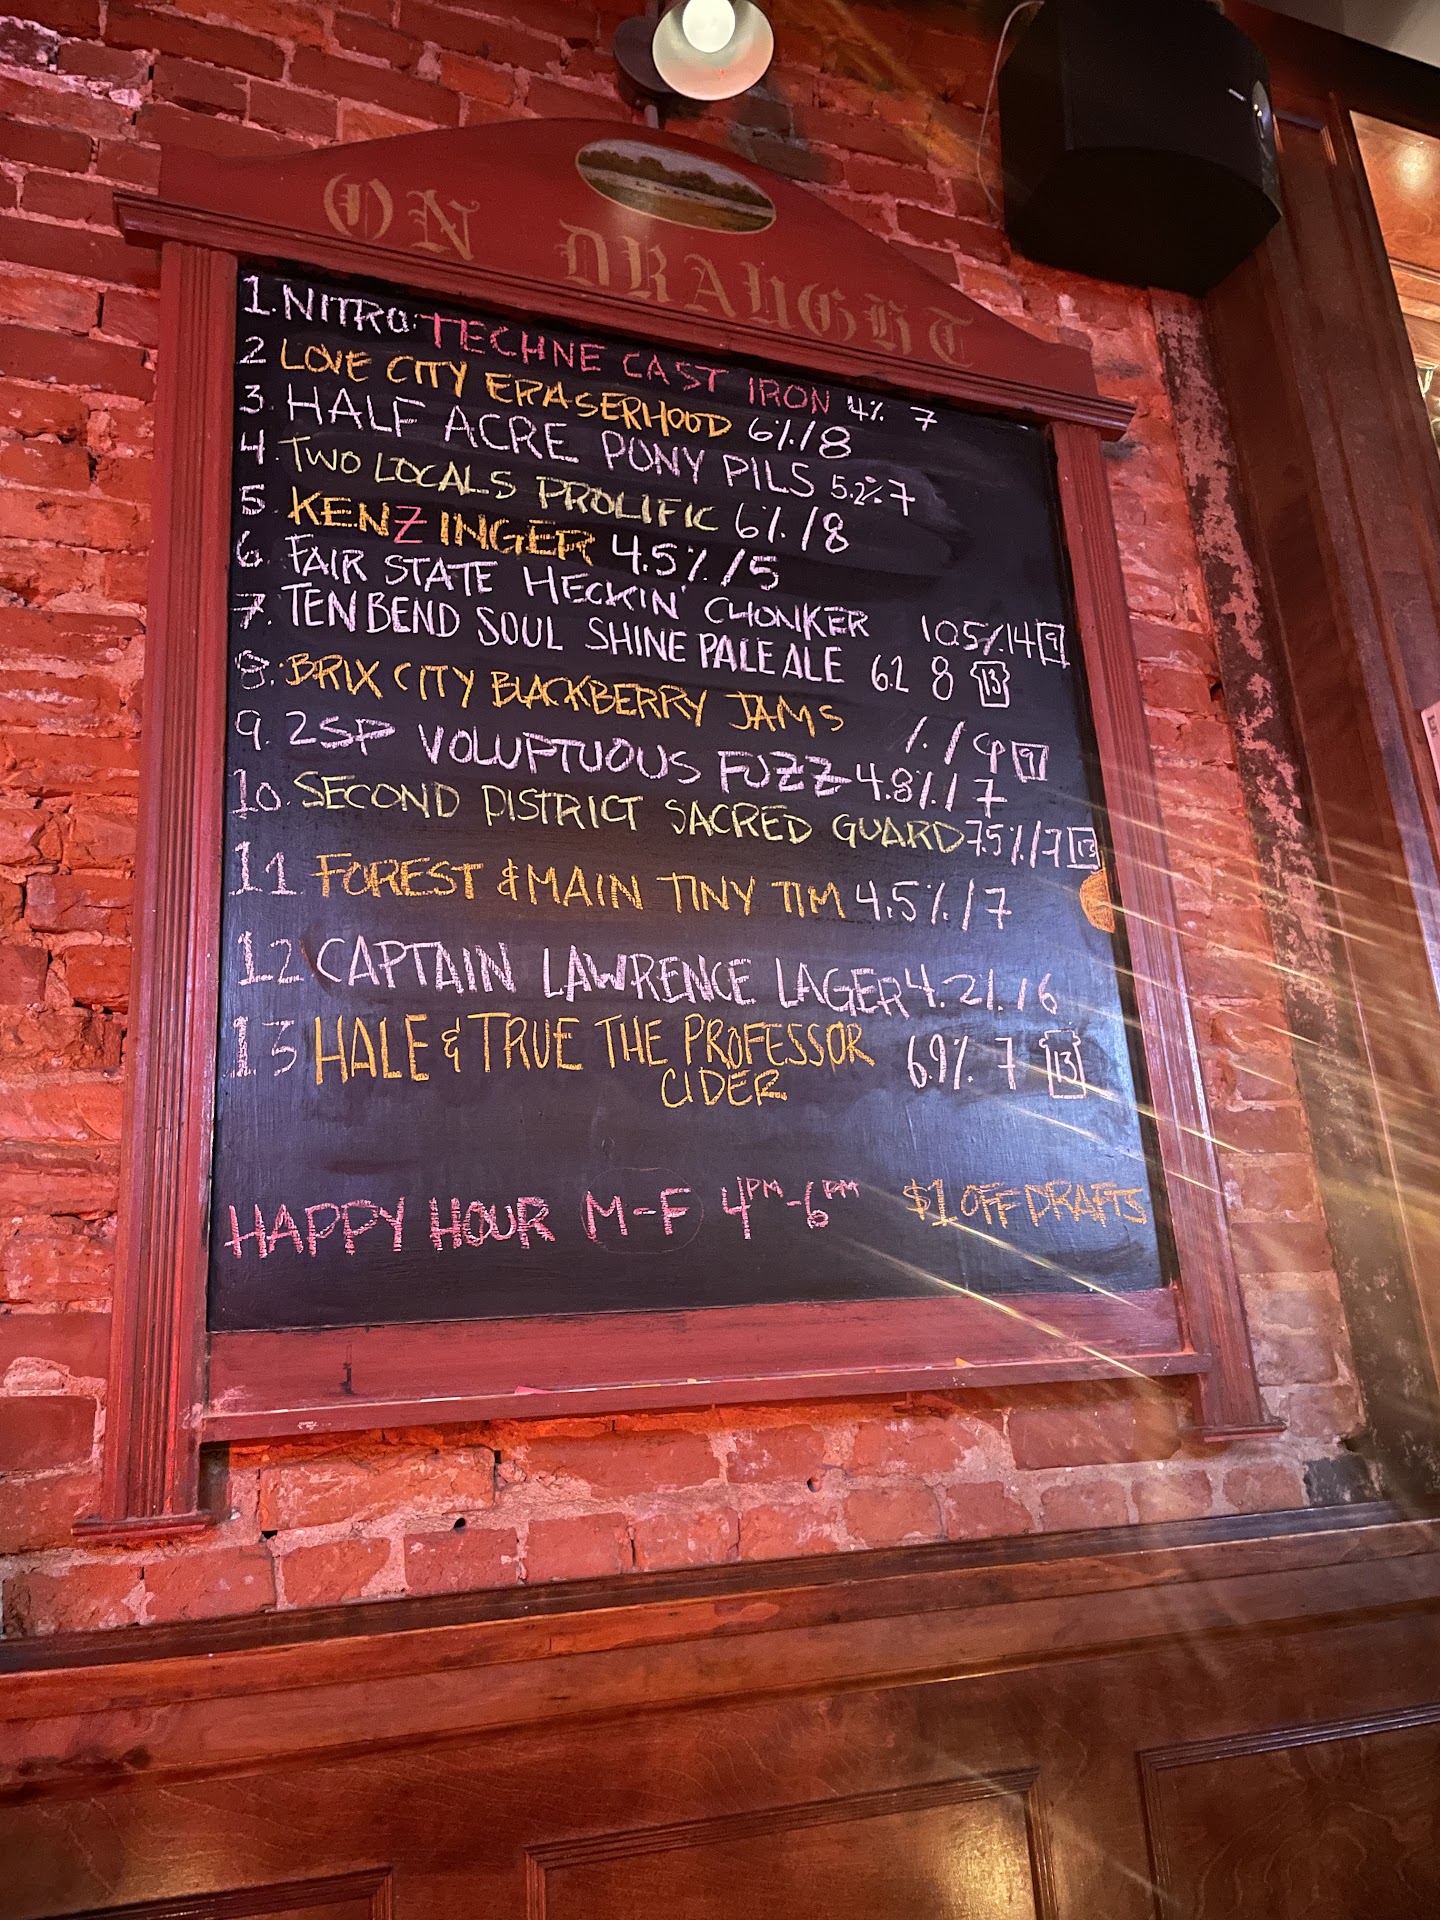 ON DRAUGHT
1. NITRO: TECHNE CAST IRON 4% 7
2 LOVE CITY ERASERHOOD 6%/8
3. HALF ACRE PONY PILS 5.2% 7
4. TWO LOCALS PROLIFIC 6%/8
5. KENZINGER 4.5%/5
6. FAIR STATE HECKIN' CHONKER 10.5%/14 9
7. TEN BEND SOUL SHINE PALE ALE 6.2 8 13
8. BRIX CITY BLACKBERRY JAMS %/9 9
9. 2SP VOLUPTUOUS FUZZ 4.8%/7
10. SECOND DISTRICT SACRED GUARD 7.5%/7 13
11 FOREST & MAIN TINY TIM 4.5%/7
12 CAPTAIN LAWRENCE LAGER 4.2%/6
13 HALE & TRUE THE PROFESSOR 6.9% 7 13
CIDER
HAPPY HOUR M-F 4PM-6PM $1 OFF DRAFTS